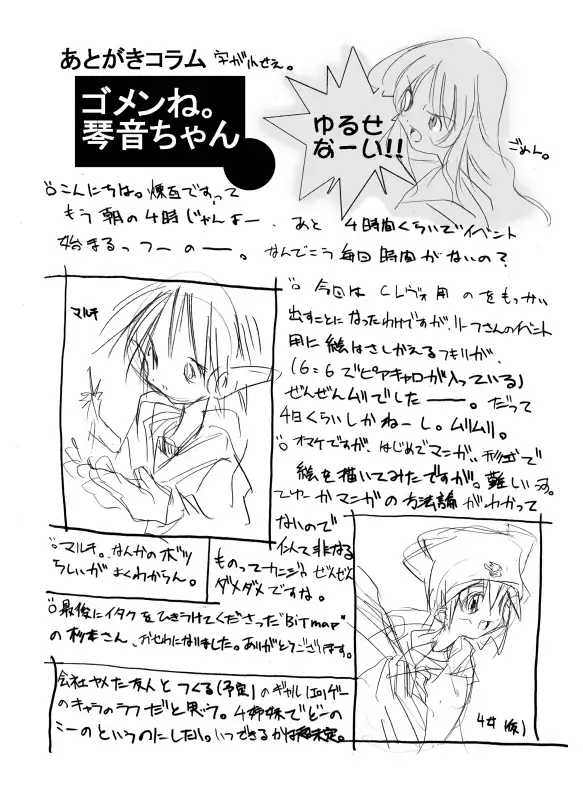 あとがきコラム 字が小せえ。
ゴメンね。
琴音ちゃん
ゆるせ
なーい!!
ごめん。
こんにちは。煉瓦ですって
もう朝の4時じゃんよー、あと 4時間くらいでイベント
始まるっつーのー。なんでこう毎回時間がないの?
マルチ
今回はCレヴォ用のをもっかい
出すことになったわけですが、リーフさんのイベント
用に絵はさしかえるフキリが、
(6=6でピアキャロが入っている)
ぜんぜんムリでしたー。だって
4日くらいしかねーし。ムリムリ。
オマケですが、はじめてマンガ形式で
絵を描いてみたですが。難しい
つーかマンガの方法論がわかって
ないので
似て非なる
ものってカンジ。ぜんぜん
ダメダメですな。
マルチ。なんかのボツ
らしいがよくわからん。
最後にイタクをひきうけてくださった"BiTmap"
の杉本さん、おせわになりました。ありがとうございます。
会社ヤメた友人とつくる(予定)のギャル(エロ)ゲー
のキャラのラフだと思う。4姉妹でどーの
こーのというのにしたい。いつできるかは未定。
4女(仮)